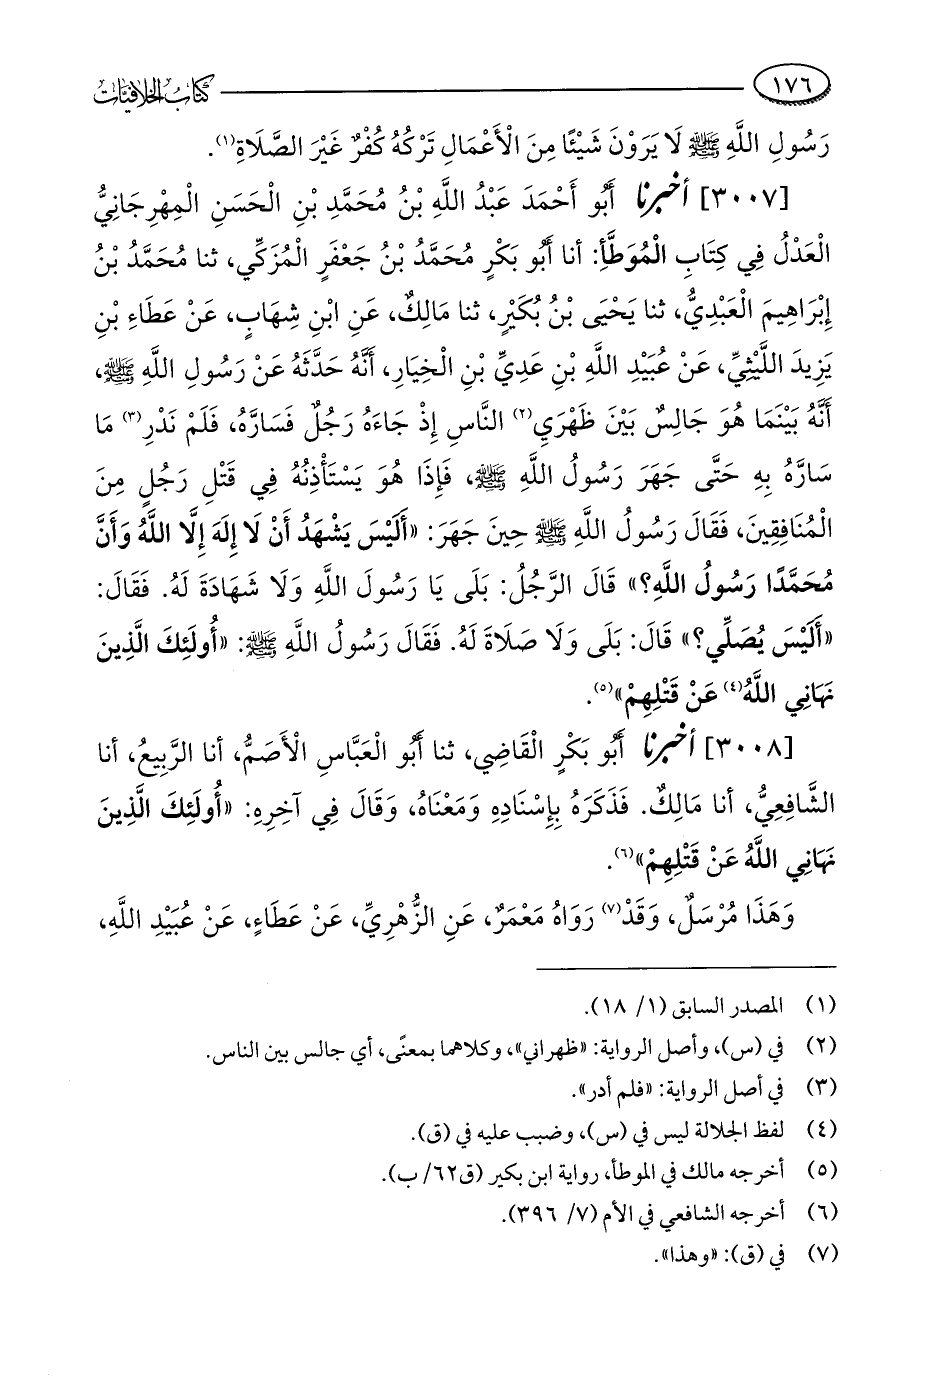 ١٧٦ كتاب الخلافيات
رَسُولِ اللَّهِ ﷺ لَا يَرَوْنَ شَيْئًا مِنَ الْأَعْمَالِ تَرْكُهُ كُفْرٌ غَيْرَ الصَّلَاةِ(١).
[٣٠٠٧] أخبرنا أَبُو أَحْمَدَ عَبْدُ اللَّهِ بْنُ مُحَمَّدِ بْنِ الْحَسَنِ الْمِهْرِجَانِيُّ
الْعَدْلُ فِي كِتَابِ الْمُوَطَّأِ: أنا أَبُو بَكْرٍ مُحَمَّدُ بْنُ جَعْفَرٍ الْمُزَكِّي، ثنا مُحَمَّدُ بْنُ
إِبْرَاهِيمَ الْعَبْدِيُّ، ثنا يَحْيَى بْنُ بُكَيْرٍ، ثنا مَالِكٌ، عَنِ ابْنِ شِهَابٍ، عَنْ عَطَاءِ بْنِ
يَزِيدَ اللَّيْثِيِّ، عَنْ عُبَيْدِ اللَّهِ بْنِ عَدِيِّ بْنِ الْخِيَارِ، أَنَّهُ حَدَّثَهُ عَنْ رَسُولِ اللَّهِ ﷺ،
أَنَّهُ بَيْنَمَا هُوَ جَالِسٌ بَيْنَ ظَهْرَيِ(٢) النَّاسِ إِذْ جَاءَهُ رَجُلٌ فَسَارَّهُ، فَلَمْ نَدْرِ(٣) مَا
سَارَّهُ بِهِ حَتَّى جَهَرَ رَسُولُ اللَّهِ ﷺ، فَإِذَا هُوَ يَسْتَأْذِنُهُ فِي قَتْلِ رَجُلٍ مِنَ
الْمُنَافِقِينَ، فَقَالَ رَسُولُ اللَّهِ ﷺ حِينَ جَهَرَ: «أَلَيْسَ يَشْهَدُ أَنْ لَا إِلَهَ إِلَّا اللَّهُ وَأَنَّ
مُحَمَّدًا رَسُولُ اللَّهِ؟» قَالَ الرَّجُلُ: بَلَى يَا رَسُولَ اللَّهِ وَلَا شَهَادَةَ لَهُ. فَقَالَ:
«أَلَيْسَ يُصَلِّي؟» قَالَ: بَلَى وَلَا صَلَاةَ لَهُ. فَقَالَ رَسُولُ اللَّهِ ﷺ: «أُولَئِكَ الَّذِينَ
نَهَانِي اللَّهُ(٤) عَنْ قَتْلِهِمْ»(٥).
[٣٠٠٨] أخبرنا أَبُو بَكْرٍ الْقَاضِي، ثنا أَبُو الْعَبَّاسِ الْأَصَمُّ، أنا الرَّبِيعُ، أنا
الشَّافِعِيُّ، أنا مَالِكٌ. فَذَكَرَهُ بِإِسْنَادِهِ وَمَعْنَاهُ، وَقَالَ فِي آخِرِهِ: «أُولَئِكَ الَّذِينَ
نَهَانِي اللَّهُ عَنْ قَتْلِهِمْ»(٦).
وَهَذَا مُرْسَلٌ، وَقَدْ(٧) رَوَاهُ مَعْمَرٌ، عَنِ الزُّهْرِيِّ، عَنْ عَطَاءٍ، عَنْ عُبَيْدِ اللَّهِ،
(١) المصدر السابق (١/ ١٨).
(٢) في (س)، وأصل الرواية: «ظهراني»، وكلاهما بمعنًى، أي جالس بين الناس.
(٣) في أصل الرواية: «فلم أدر».
(٤) لفظ الجلالة ليس في (س)، وضبب عليه في (ق).
(٥) أخرجه مالك في الموطأ، رواية ابن بكير (ق٦٢/ ب).
(٦) أخرجه الشافعي في الأم (٧/ ٣٩٦).
(٧) في (ق): «وهذا».